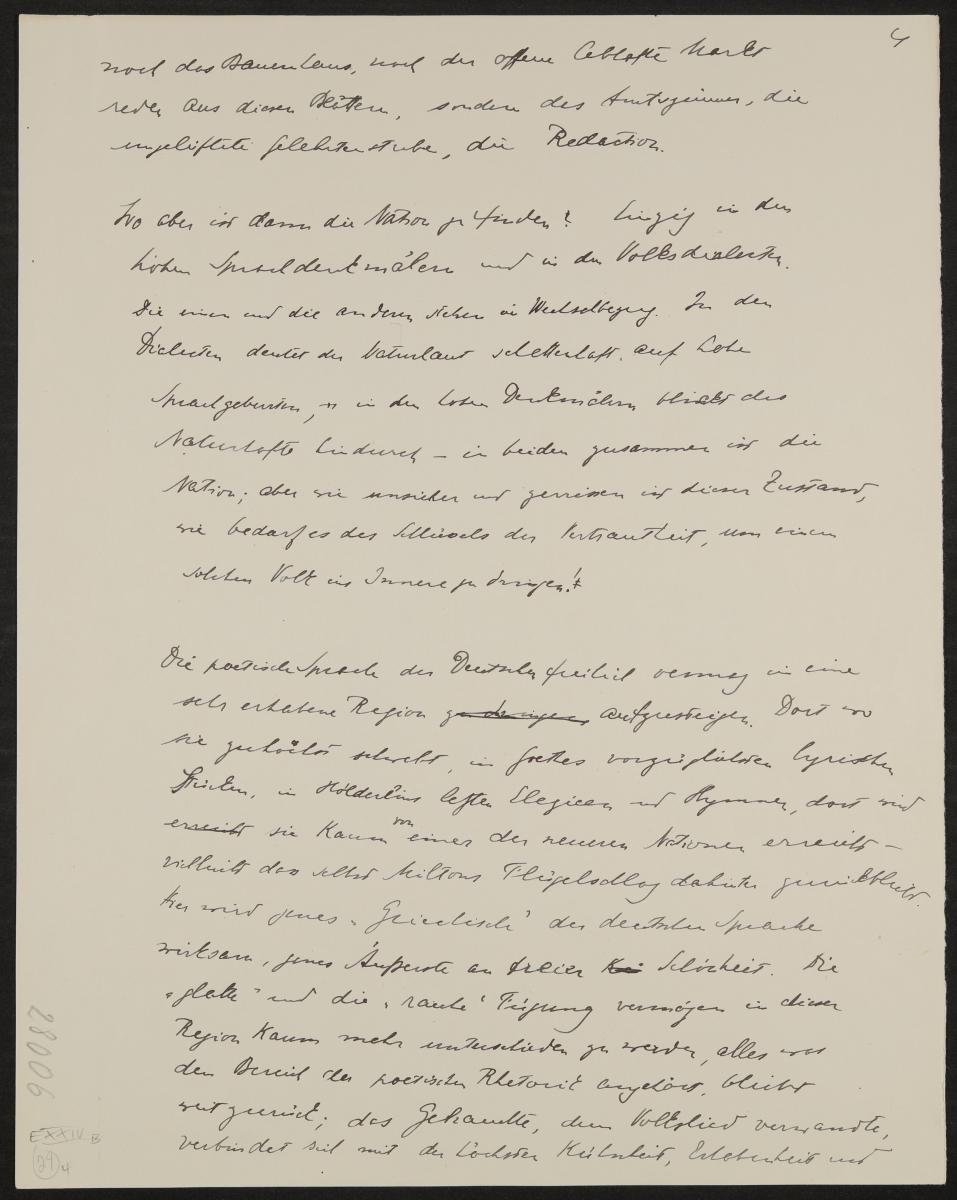 4
noch das Bauernhaus, noch der offene lebhafte Markt
reden aus diesen Blättern, sondern das Amtszimmer, die
ungelüftete Gelehrtenstube, die Redaction.
Wo aber ist dann die Nation zu finden? Einzig in den
hohen Sprachdenkmälern und in den Volksdialecten.
Die einen und die anderen stehen in Wechselbezug. In den
Dialecten deutet der Naturlaut schattenhaft auf hohe
Sprachgeburten, u in den hohen Denkmälern blickt das
Naturhafte hindurch – in beiden zusammen ist die
Nation; aber wie unsicher und zerrissen ist dieser Zustand,
wie bedarf es des Schlüssels der Vertrautheit, um einem
solchen Volk ins Innere zu dringen!
Die poetische Sprache der Deutschen freilich vermag in eine
sehr erhabene Region zu dringen aufzusteigen. Dort wo
sie zuhöchst schwebt, in Goethes vorzüglichsten lyrischen
Stücken, in Hölderlins letzten Elegieen und Hymnen, dort wird
erreicht sie kaum von einer der neueren Nationen erreicht –
vielleicht dass selbst Miltons Flügelschlag dahinter zurückbleibt.
Hier wird jenes „Griechische" der deutschen Sprache
wirksam, jenes Äusserste an freier Schönheit. Die
„glatte" und die „rauhe" Fügung vermögen in dieser
Region kaum mehr unterschieden zu werden, alles was
dem Bereich der poetischen Rhetorik angehört, bleibt
weit zurück; das Gehauchte, dem Volkslied verwandte,
verbindet sich mit der höchsten Kühnheit, Erhabenheit und
28006
E XXIV B
29 4